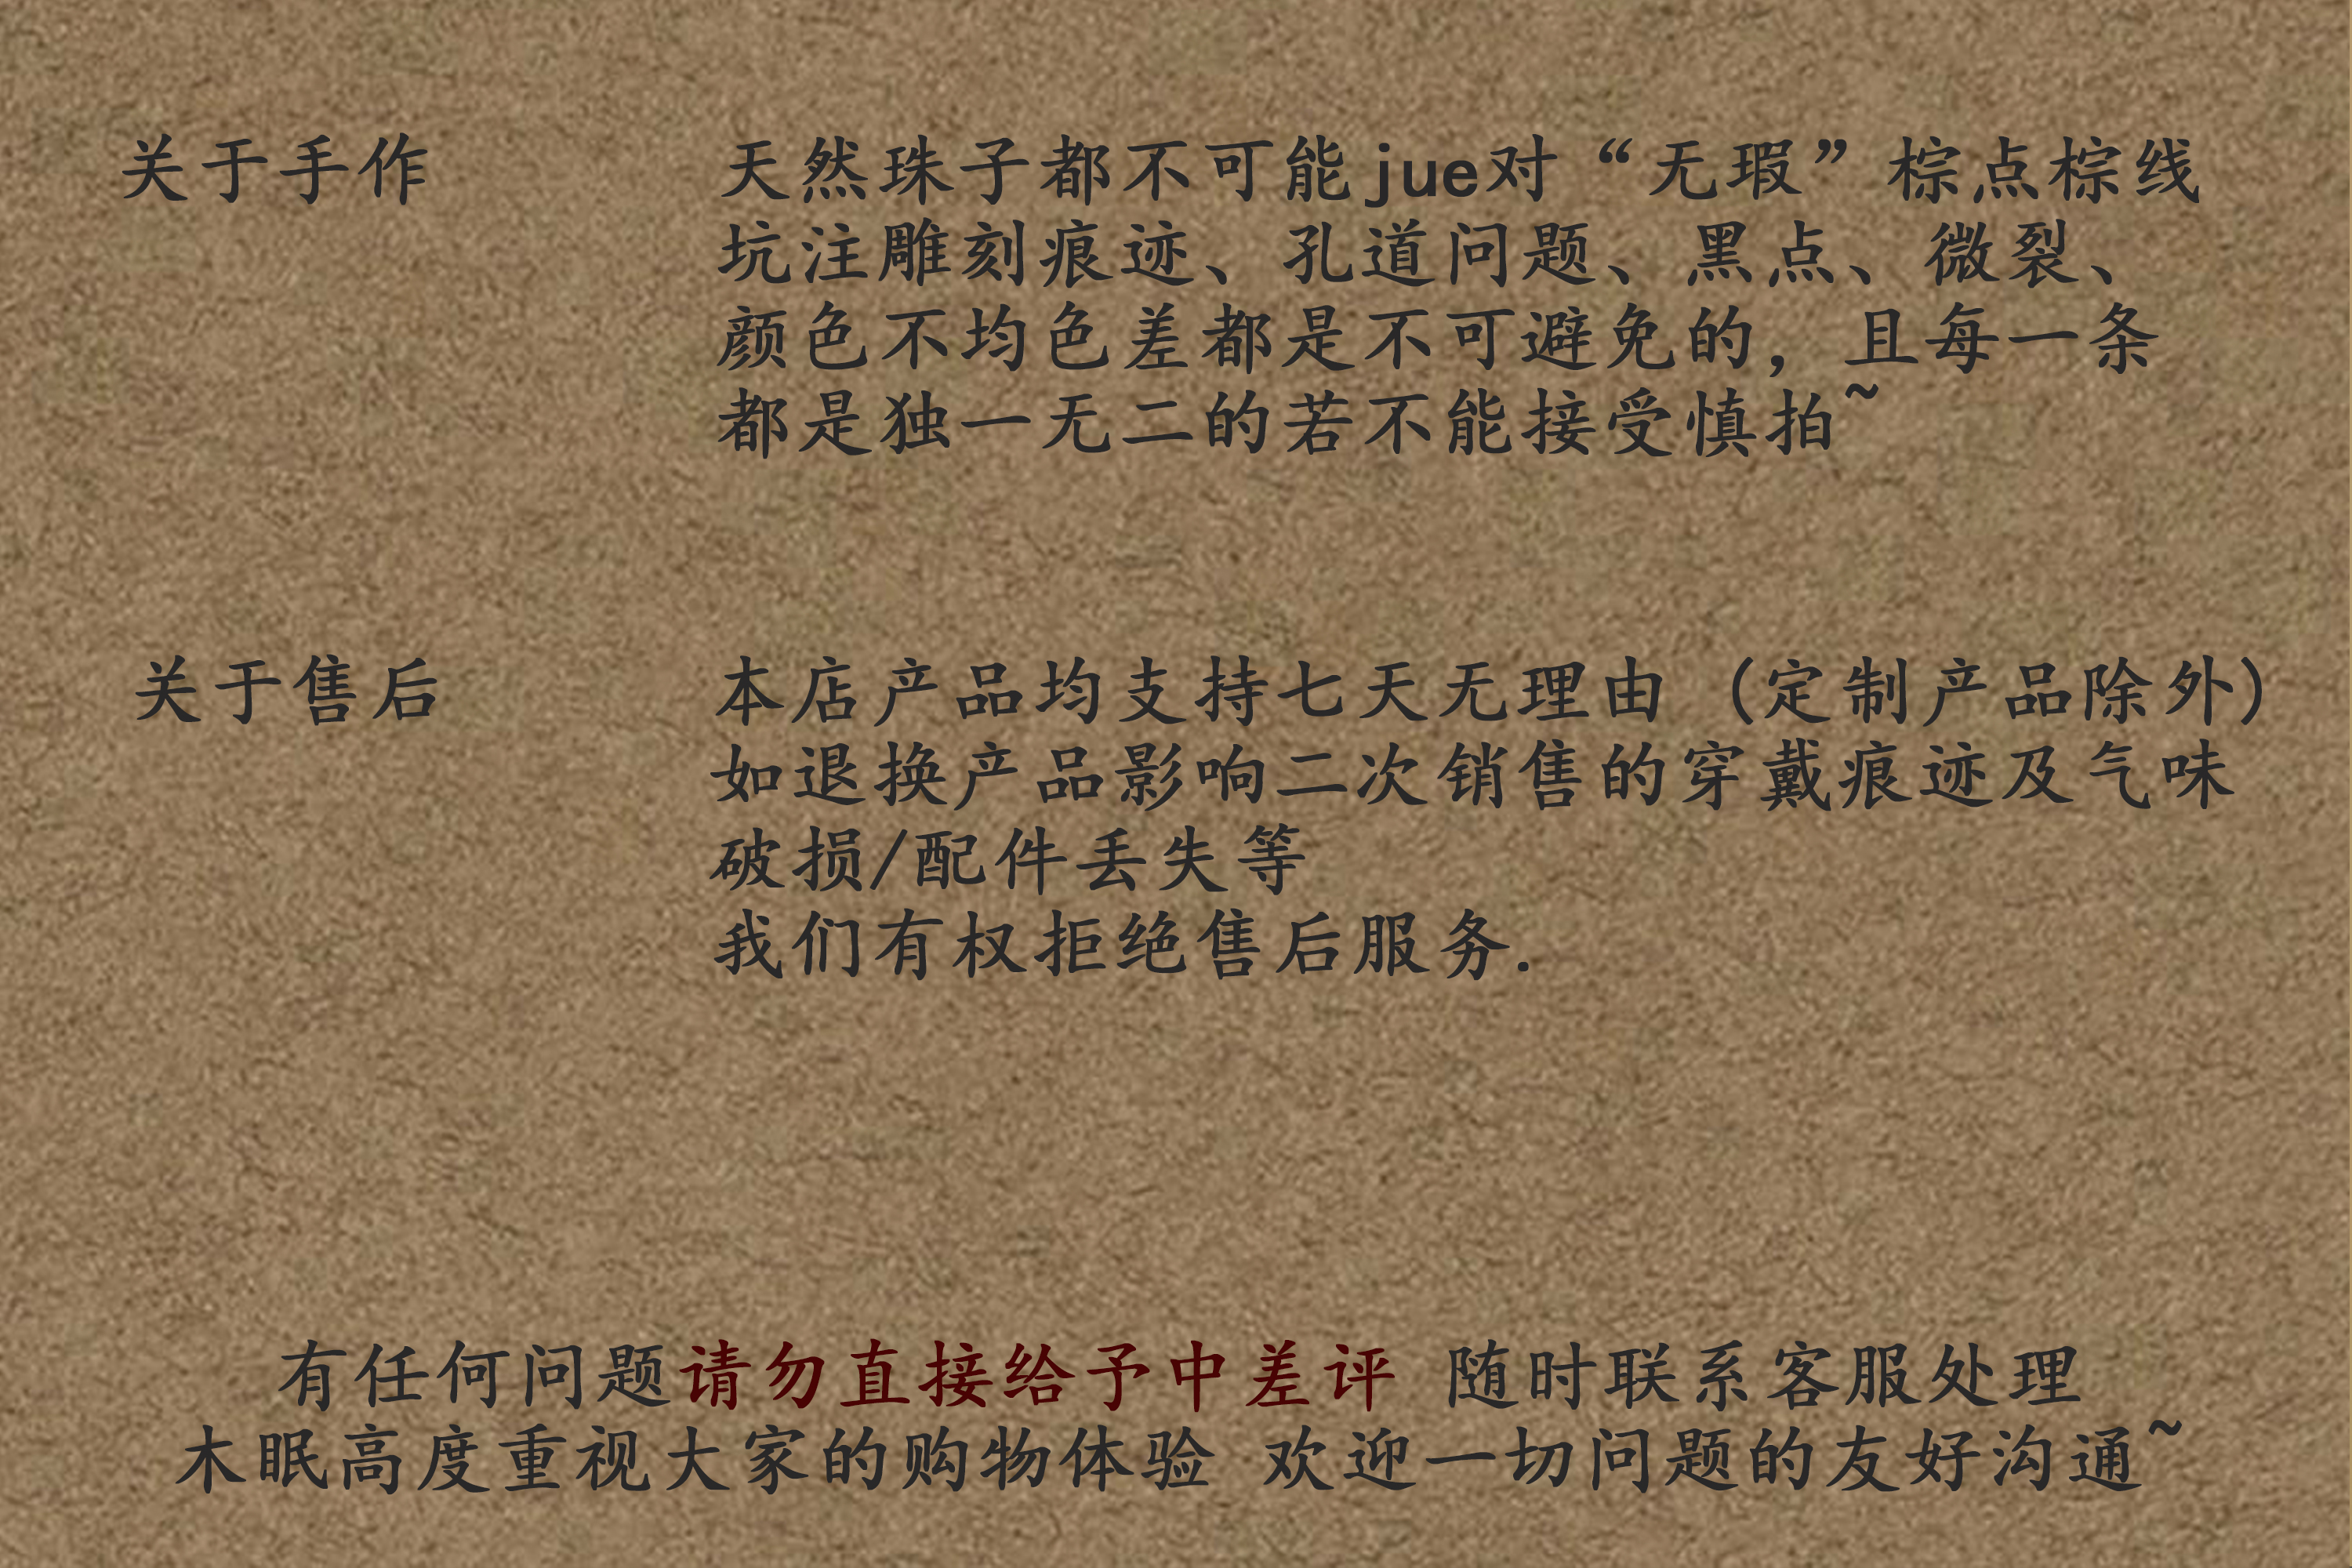 关于手作
天然珠子都不可能jue对“无瑕”棕点棕线
坑注雕刻痕迹、孔道问题、黑点、微裂、
颜色不均色差都是不可避免的，且每一条
都是独一无二的若不能接受慎拍~
关于售后
本店产品均支持七天无理由（定制产品除外）
如退换产品影响二次销售的穿戴痕迹及气味
破损/配件丢失等
我们有权拒绝售后服务.
有任何问题请勿直接给予中差评 随时联系客服处理
木眠高度重视大家的购物体验 欢迎一切问题的友好沟通~